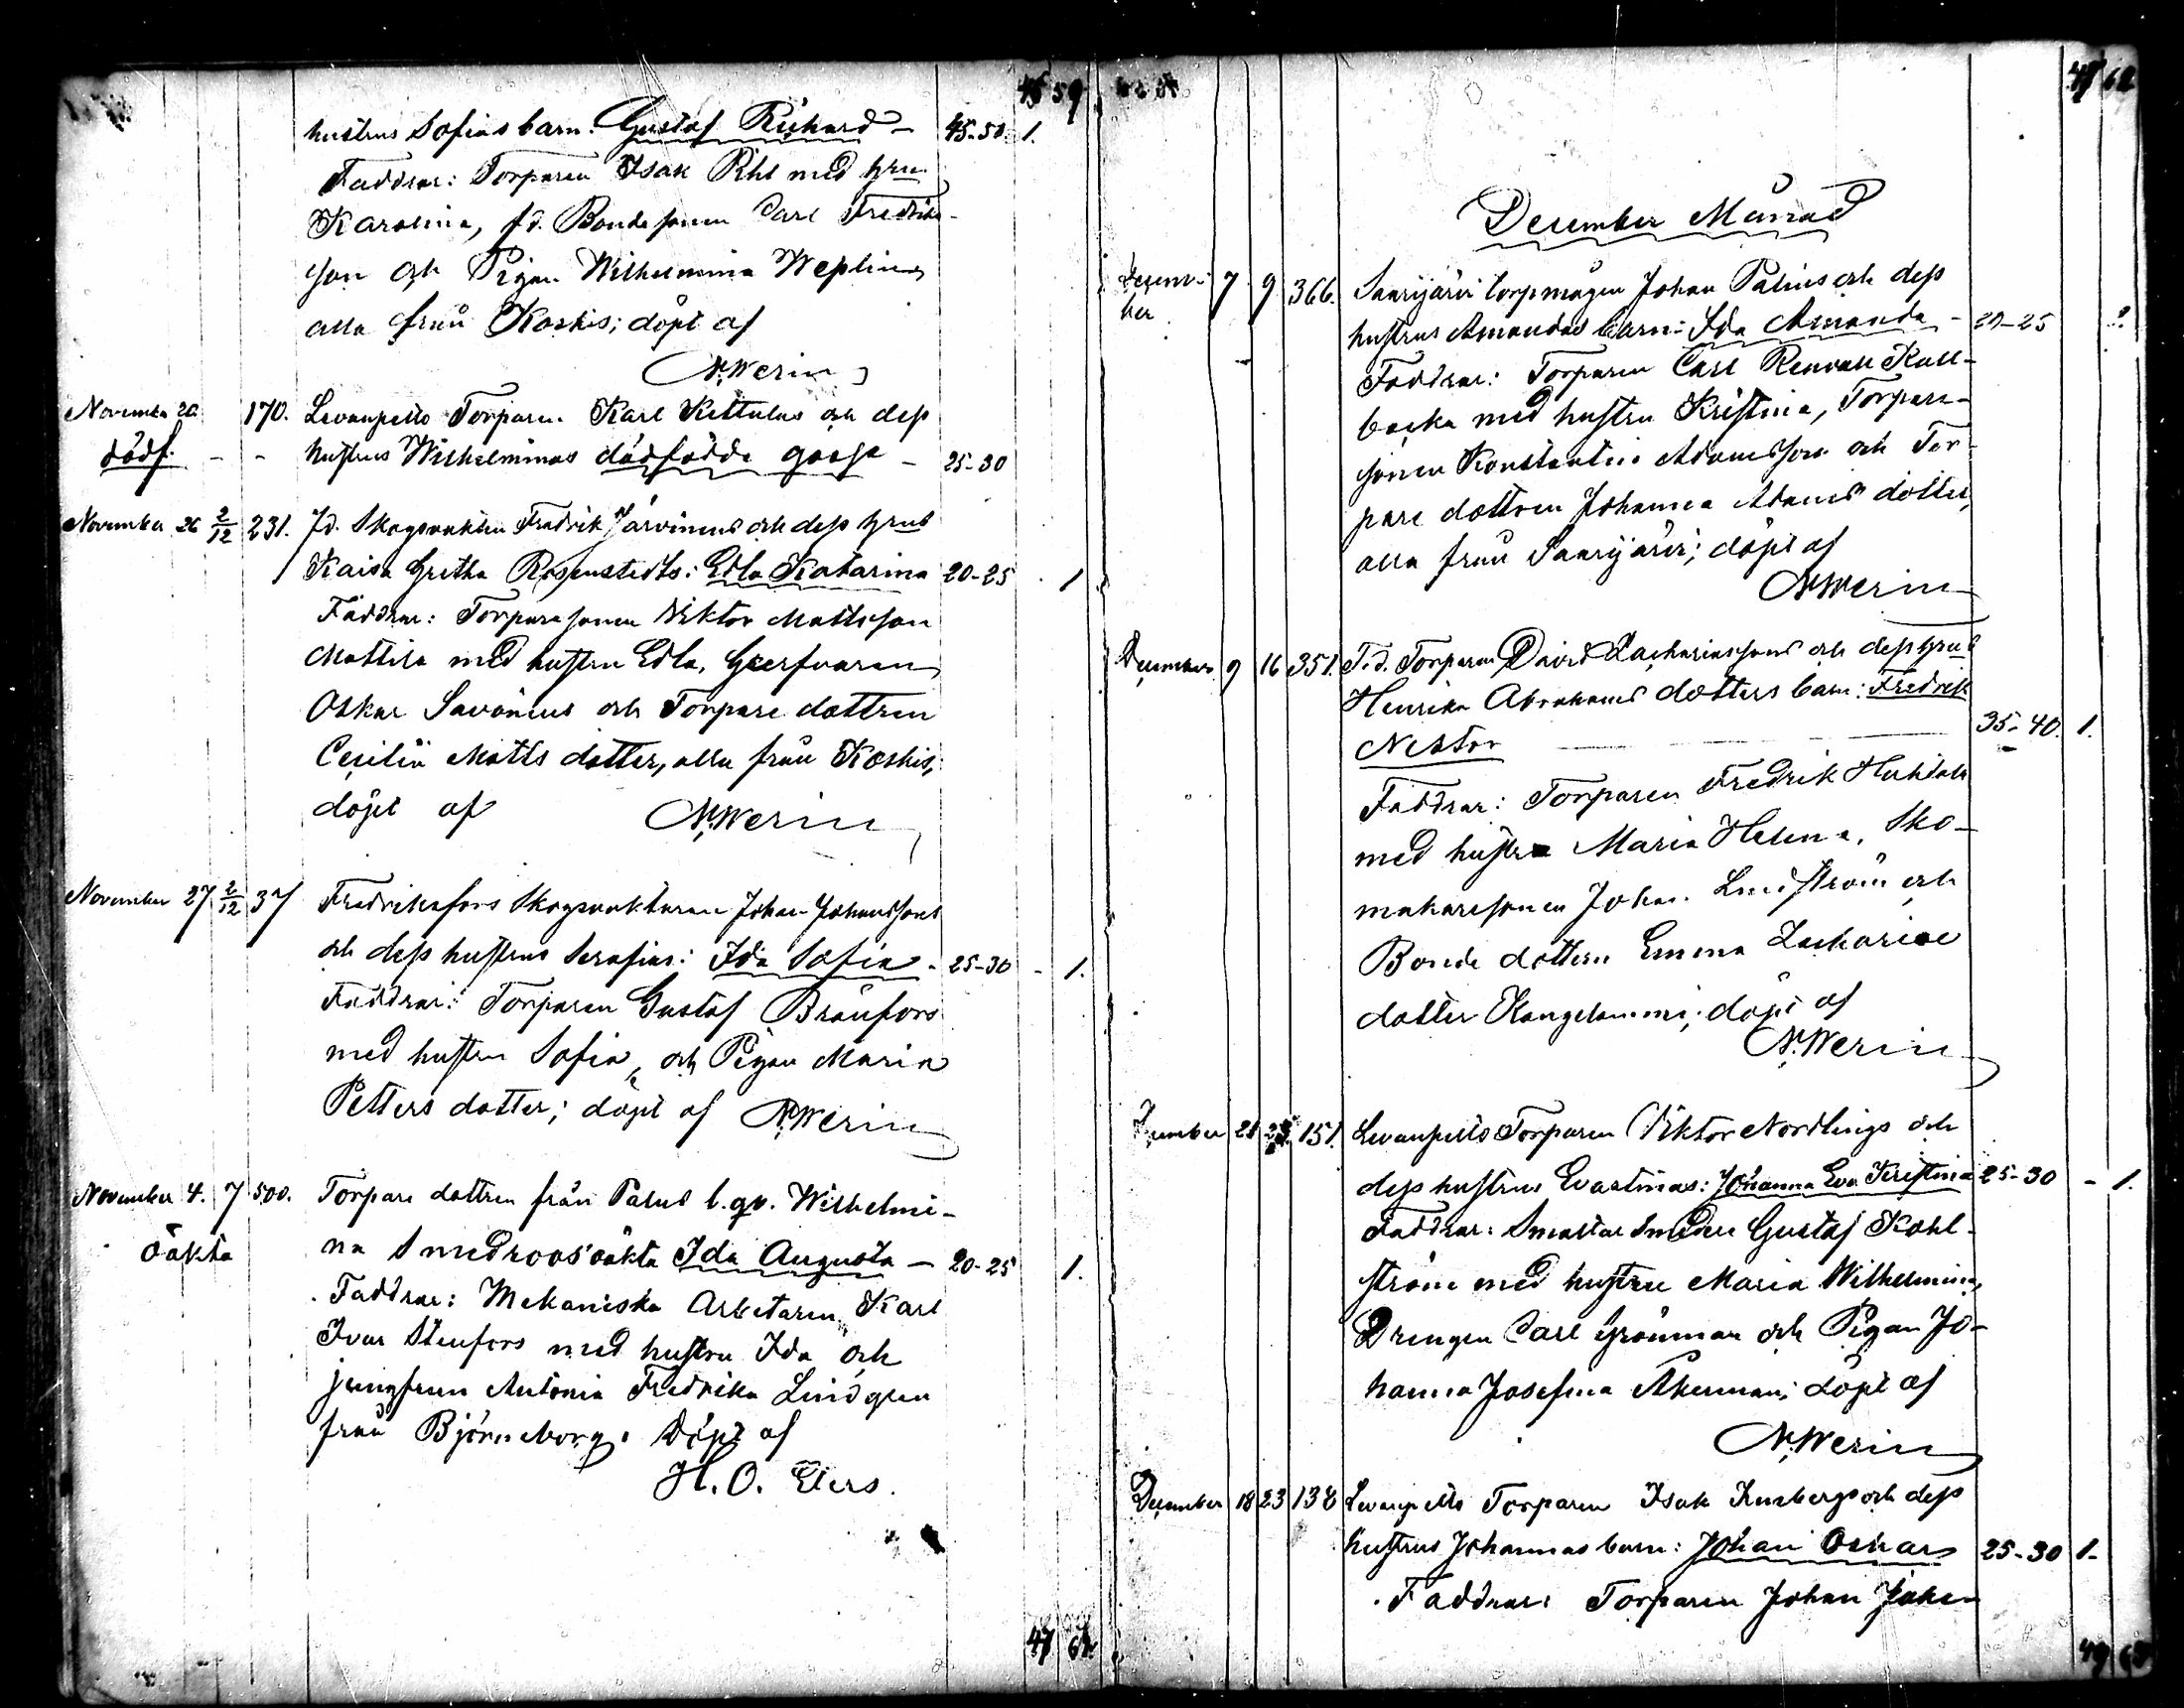 45 59
hustrus Sofias barn: Gustaf Richard – 45-50 1.
Faddrar: Torparen Isak Rihl med hru
Karolina, fd. Bondesonen Carl Fredriks-
son och Pigan Wilhelmina Weplin,
alla från Koskis; döpt af
N. Werin
November 20 170. Levanpelto Torparen Karl Kettulas och dess
dödf. - - hustrus Wilhelminas dödfödda gosse – 25-30
November 26 2/12 231. Fd. Skogsvakten Fredrik Järvinens och dess hrus
Kaisa Gretha Rosenstedts: Edla Katarina 20-25 1
Faddrar: Torparesonen Viktor Mattsson
Mattila med hustru Edla,
Oskar Savonius och Torpare dottren
Cecilia Matts dotter, alla från Koskis,
döpt af N. Werin
November 27 2/12 37 Fredriksfors Skogsvaktaren Johan Johanssons
och dess hustrus Serafias: Ida Sofia - 25-30 - 1.
Faddrar: Torparen Gustaf Brånfors
med hustru Sofia, och Pigan Maria
Petters dotter; döpt af N. Werin
November 4. 7 500. Torpare dottren från Palus l. qv. Wilhelmi-
oäkta na Smedroos' oäkta Ida Augusta – 20-25 1.
Faddrar: Mekaniska Arbetaren Karl
Ivar Stenfors med hustru Ida och
jungfrun Antonia Fredrika Lindgren
från Björneborg. Döpt af
H. O. Elers.
47 62
47 62
December Månad
Decem- 7 9 366. Saarijärvi torpmågen Johan Palins och dess
ber hustrus Amandas barn: Ida Amanda – 20-25
Faddrar: Torparen Carl Renvall Kall-
backa med hustru Kristina, Torpare-
sonen Konstantin Adamsson och Tor-
pare dottren Johanna Adams dotter,
alla från Saarijärvi; döpt af
N. Werin
December 9 16 351. F.d. Torparen David Zachariassons och dess hrus
Henrika Abrahams dotters barn: Fredrik
Nestor 35-40. 1.
Faddrar: Torparen Fredrik
med hustru Maria Helena, Sko-
makaresonen Johan Lindström och
Bonde dottern Emma Zachariae
dotter Kangelammi; döpt af
N. Werin
December 21 151. Levanpelto Torparen Viktor Nordlings och
dess hustrus Evastinas: Johanna Eva Kristina 25-30 - 1.
Faddrar: Smeden Gustaf Kohl-
ström med hustru Maria Wilhelmina,
Drengen Carl Grönman och Pigan Jo-
hanna Josefina Åkerman; döpt af
N. Werin
December 18 23 138 Levanpelto Torparen Isak och dess
hustrus Johannas barn: Johan Oskar 25-30 1-
Faddrar: Torparen Johan
49